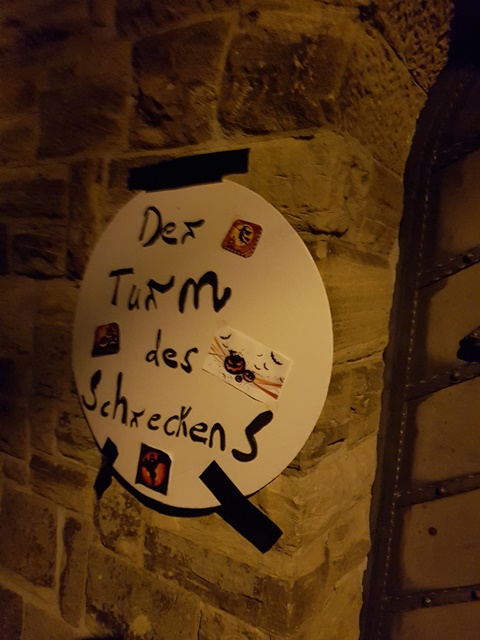 Der
Turm
des
Schreckens